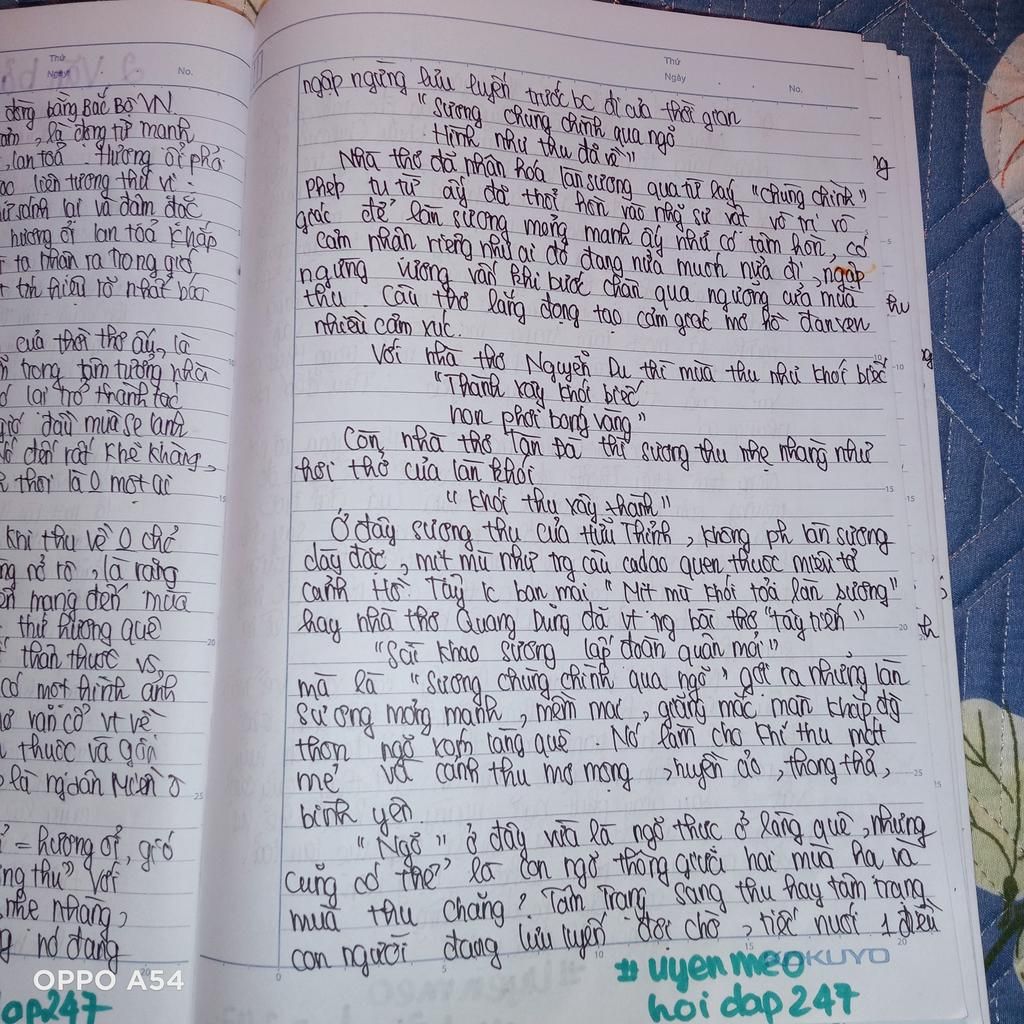 Thứ
Ngày
No.
đồng bằng Bắc Bộ VN
là động từ mạnh
lan toả hương ổi phả
liên tưởng thú vị.
sánh lại và đậm đặc
hương ổi lan toả khắp
ta nhận ra trong gió
tín hiệu rõ nhất báo
của thời thơ ấy, là
trong tâm tưởng nhà
lại trở thành tác
gió đầu mùa se lạnh
đến rất khẽ khàng,
thơi là 0 một ai
khi thu về 0 chỉ
nở rộ, là rặng
mang đến mùa
thứ hương quê
thân thuộc vs
có một hình ảnh
vẫn cổ vt về
thuộc và gần
là ng dân Miền
= hương ổi, gió
thu" với
nhẹ nhàng,
nó đang
OPPO A54
op247
Thứ
Ngày
No.
ngập ngừng lưu luyến trước bc đi của thời gian
"Sương chùng chình qua ngõ
Hình như thu đã về"
Nhà thơ đã nhân hóa làn sương qua từ láy "chùng chình"
phép tu từ ấy đã thổi hồn vào nhg sự vật vô tri vô
giác để làn sương mỏng manh ấy như có tâm hồn, có
cảm nhận riêng như ai đó đang nửa muốn nửa đi, ngập
ngừng vương vấn khi bước chân qua ngưỡng cửa mùa
thu. Câu thơ lắng đọng tạo cảm giác mơ hồ đan xen
nhiều cảm xúc.
Với nhà thơ Nguyễn Du thì mùa thu như khói biếc
"Thành xây khói biếc
non phơi bóng vàng"
Còn nhà thơ Tản Đà thì sương thu nhẹ nhàng như
hơi thở của làn khói
"Khói thu xây thành"
Ở đây sương thu của Hữu Thỉnh, không ph làn sương
dày đặc, mịt mù như trg câu cadao quen thuộc miêu tả
cảnh Hồ Tây lc ban mai "Mịt mù khói tỏa làn sương"
hay nhà thơ Quang Dũng đã vt trg bài thơ "Tây tiến"
"Sài Khao sương lấp đoàn quân mỏi"
mà là "Sương chùng chình qua ngõ" gợi ra những làn
sương mỏng manh, mềm mại, giăng mắc màn khắp đg
thôn ngõ xóm làng quê. Nó làm cho khí thu mát
mẻ và cảnh thu mơ mộng, huyền ảo, thong thả,
bình yên
"Ngõ" ở đây vừa là ngõ thực ở làng quê, nhưng
cũng có thể là con ngõ thông giữa hai mùa hạ và
mùa thu chăng? Tâm trạng sang thu hay tâm trạng
con người đang lưu luyến đợi chờ, tiếc nuối 1 điều
KOKUYO
#uyenmeo
hoidap247